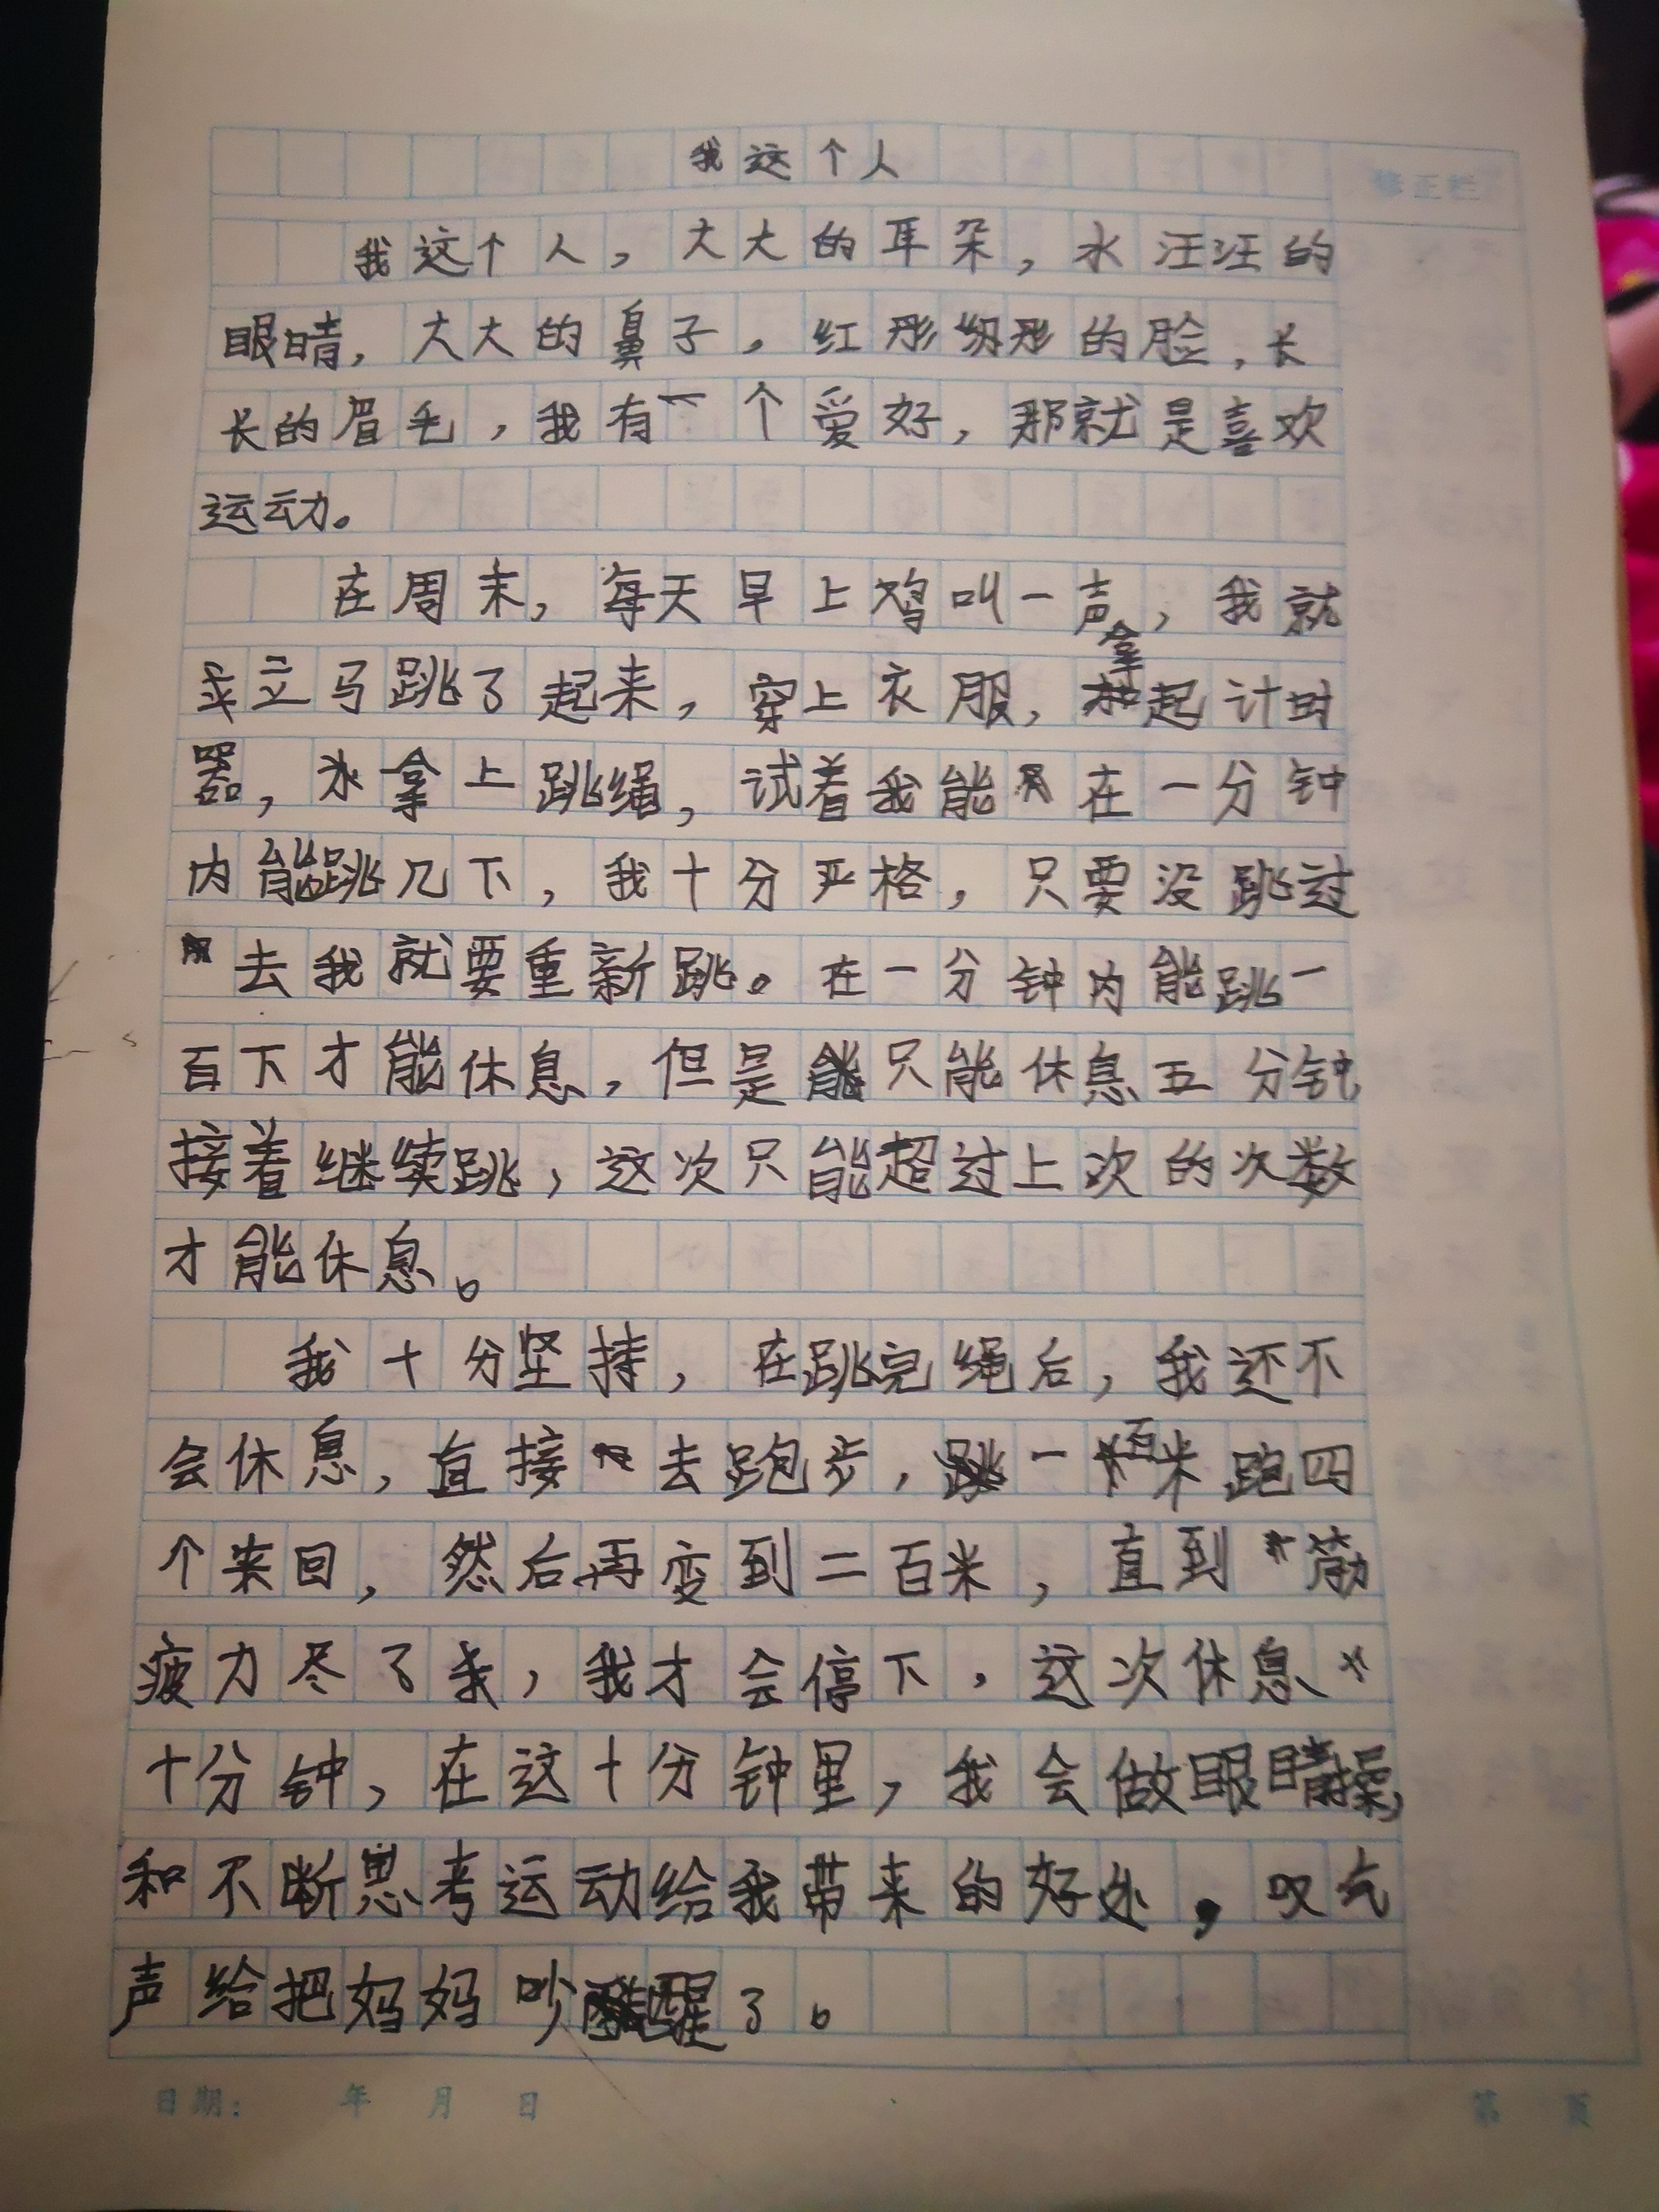 我这个人
修正栏
我这个人，大大的耳朵，水汪汪的
眼睛，大大的鼻子，红彤彤的脸，长
长的眉毛，我有一个爱好，那就是喜欢
运动。
在周末，每天早上鸡叫一声，我就
立马跳了起来，穿上衣服，拿起计时
器，拿上跳绳，试着我能在一分钟
内能跳几下，我十分严格，只要没跳过
去我就要重新跳。在一分钟内能跳一
百下才能休息，但是只能休息五分钟，
接着继续跳，这次只能超过上次的次数
才能休息。
我十分坚持，在跳完绳后，我还不
会休息，直接去跑步，一百米跑四
个来回，然后再变到二百米，直到筋
疲力尽了，我才会停下，这次休息
十分钟，在这十分钟里，我会做眼睛操，
和不断思考运动给我带来的好处，叹气
声给把妈妈吵醒了。
日期： 年 月 日
第 页